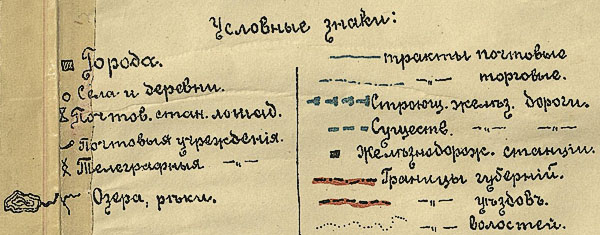 Условные знаки:
Города.
Села и деревни.
Почтов. стан. лошад.
Почтовыя учрежденія.
Телеграфныя —"—
Озера, рѣки.
тракты почтовые
—"— торговые.
Строющ. желѣз. дороги.
Существ. —"— —"—
Желѣзнодорож. станціи.
Границы губерній.
—"— уѣздовъ.
—"— волостей.